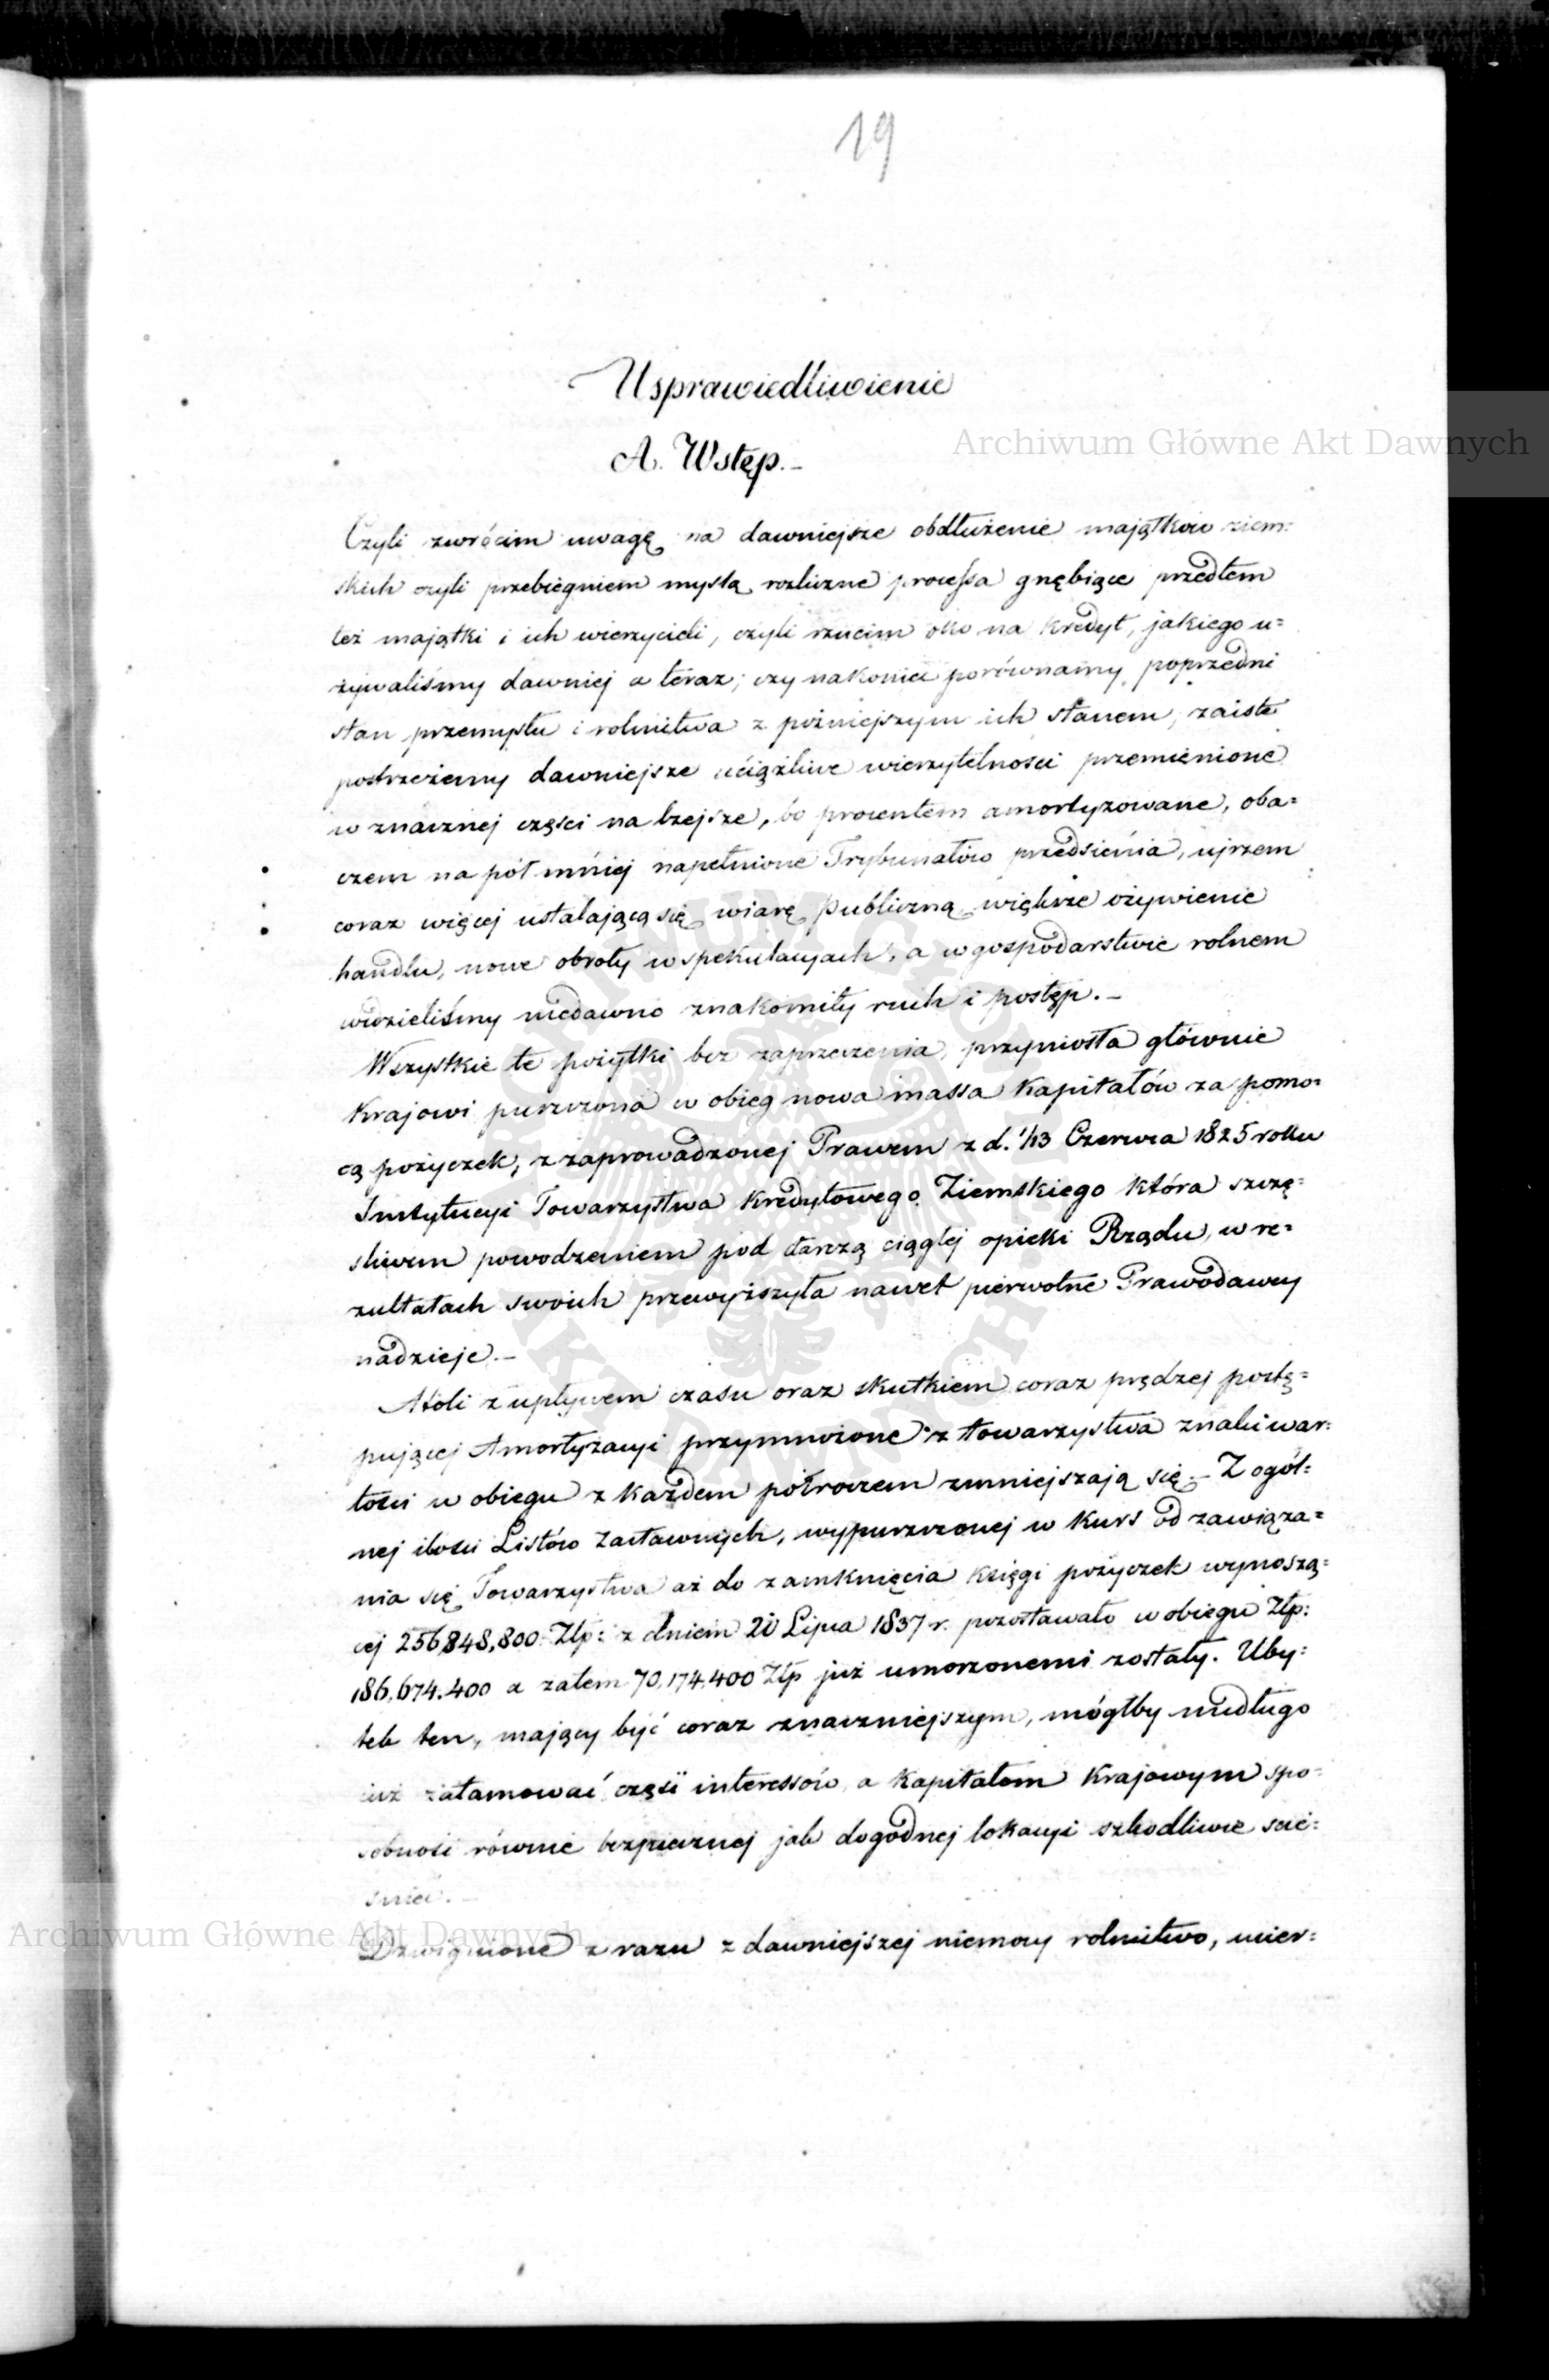 19
Usprawiedliwienie
A. Wstęp.–
Archiwum Główne Akt Dawnych
Czyli zwrócim uwagę na dawniejsze obdłużenie majątków ziem=
skich czyli przebiegniem myslą rozliczne processa gnębiące przedtem
też majątki i ich wierzycieli, czyli rzucim oko na kredyt, jakiego u=
żywaliśmy dawniej a teraz; czy nakoniec porównamy poprzedni
stan przemysłu i rolnictwa z póżniejszym ich stanem, zaiste
postrzeżemy dawniejsze uciążliwe wierzytelnosci przemienione
w znacznej częsci na lżejsze, bo procentem amortyzowane, oba=
czem na pół mniej napełnione Trybunałów przedsienia, ujrzem
coraz więcej ustalającą się wiarę publiczną większe ożywienie
handlu, nowe obroty w spekulacyach, a w gospodarstwie rolnem
widzieliśmy niedawno znakomity ruch i postęp.–
Wszystkie te pożytki bez zaprzeczenia, przyniosła głównie
Krajowi puszczona w obieg nowa massa Kapitałów za pomo=
cą pożyczek, z zaprowadzonej Prawem z d. 1/13 Czerwca 1825 roku
Instytucyi Towarzystwa Kredytowego Ziemskiego która szczę=
sliwem powodzeniem pod tarczą ciągłej opieki Rządu, w re=
zultatach swoich przewyższyła nawet pierwotne Prawodawcy
nadzieje.–
Atoli z upływem czasu oraz skutkiem coraz prędzej postę=
pującej Amortyzacyi przymnożone z towarzystwa znaki war=
tości w obiegu z każdem półroczem zmniejszają się.– Z ogół=
nej ilości Listów Zastawnych, wypuszczonej w kurs od zawiąza=
nia się Towarzystwa aż do zamknięcia księgi pożyczek wynoszą=
cej 256,848,800 Złp: z dniem 20 Lipca 1837 r. pozostawało w obiegu Złp:
186,674,400 a zatem 70,174,400 Złp już umorzonemi zostały. Uby=
tek ten, mający być coraz znaczniejszym, mógłby niedługo
już zatamować część interessów, a Kapitałom Krajowym spo=
sobności równie bezpiecznej jak dogodnej lokacyi szkodliwie scie=
snić.–
Archiwum Główne Akt Dawnych
Dzwignione z razu z dawniejszej niemocy rolnictwo, mier=